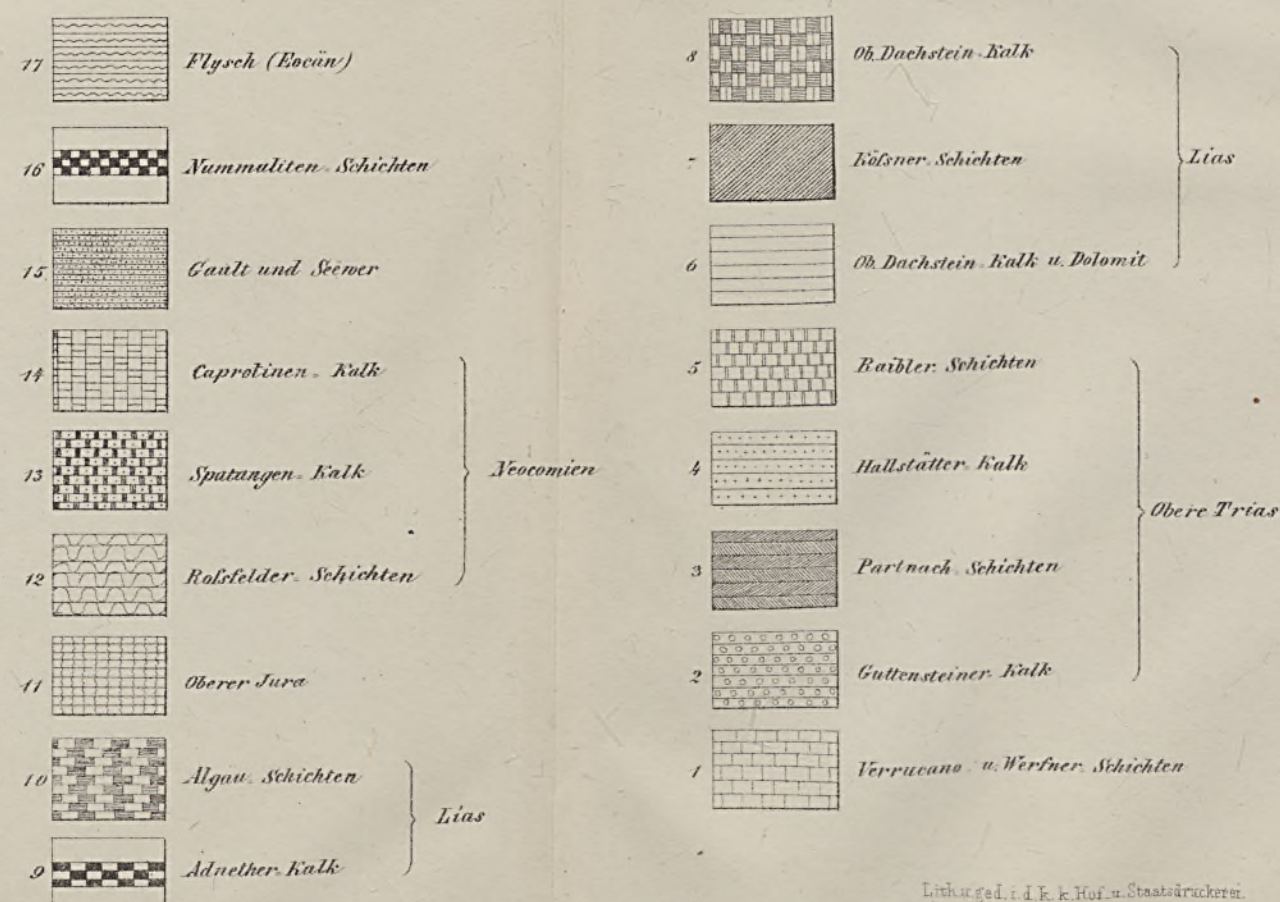 17 Flysch (Eocän)
16 Nummuliten-Schichten
15 Gault und Seewer
14 Caprotinen-Kalk
13 Spatangen-Kalk
12 Roſsfelder-Schichten
Neocomien
11 Oberer Jura
10 Algäu-Schichten
9 Adnether-Kalk
Lias
8 Ob. Dachstein-Kalk
7 Köſsner-Schichten
6 Ob. Dachstein-Kalk u. Dolomit
Lias
5 Raibler-Schichten
4 Hallstätter-Kalk
3 Partnach-Schichten
2 Guttensteiner-Kalk
Obere Trias
1 Verrucano u. Werfner-Schichten
Lith. u. ged. i. d. k. k. Hof. u. Staatsdruckerei.